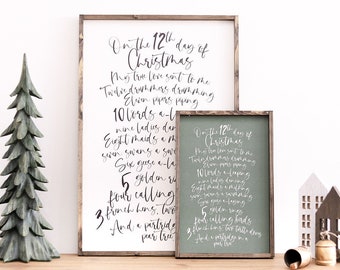 On the 12th day of
Christmas
My true love sent to me
Twelve drummers drumming
Eleven pipers piping
10 lords a-l
nine ladies dan
Eight maids a m
seven swans a sw
Six geese a-la
5 golden ri
Four calling
3 French hens, tw
And a partrid
pear tree
On the 12th day of
Christmas
My true love sent to me
Twelve drummers drumming
Eleven pipers piping
10 lords a-leaping
nine ladies dancing
Eight maids a milking
seven swans a swimming
Six geese a-laying
5 golden rings
Four calling birds
3 French hens, two turtle doves
And a partridge in a
pear tree